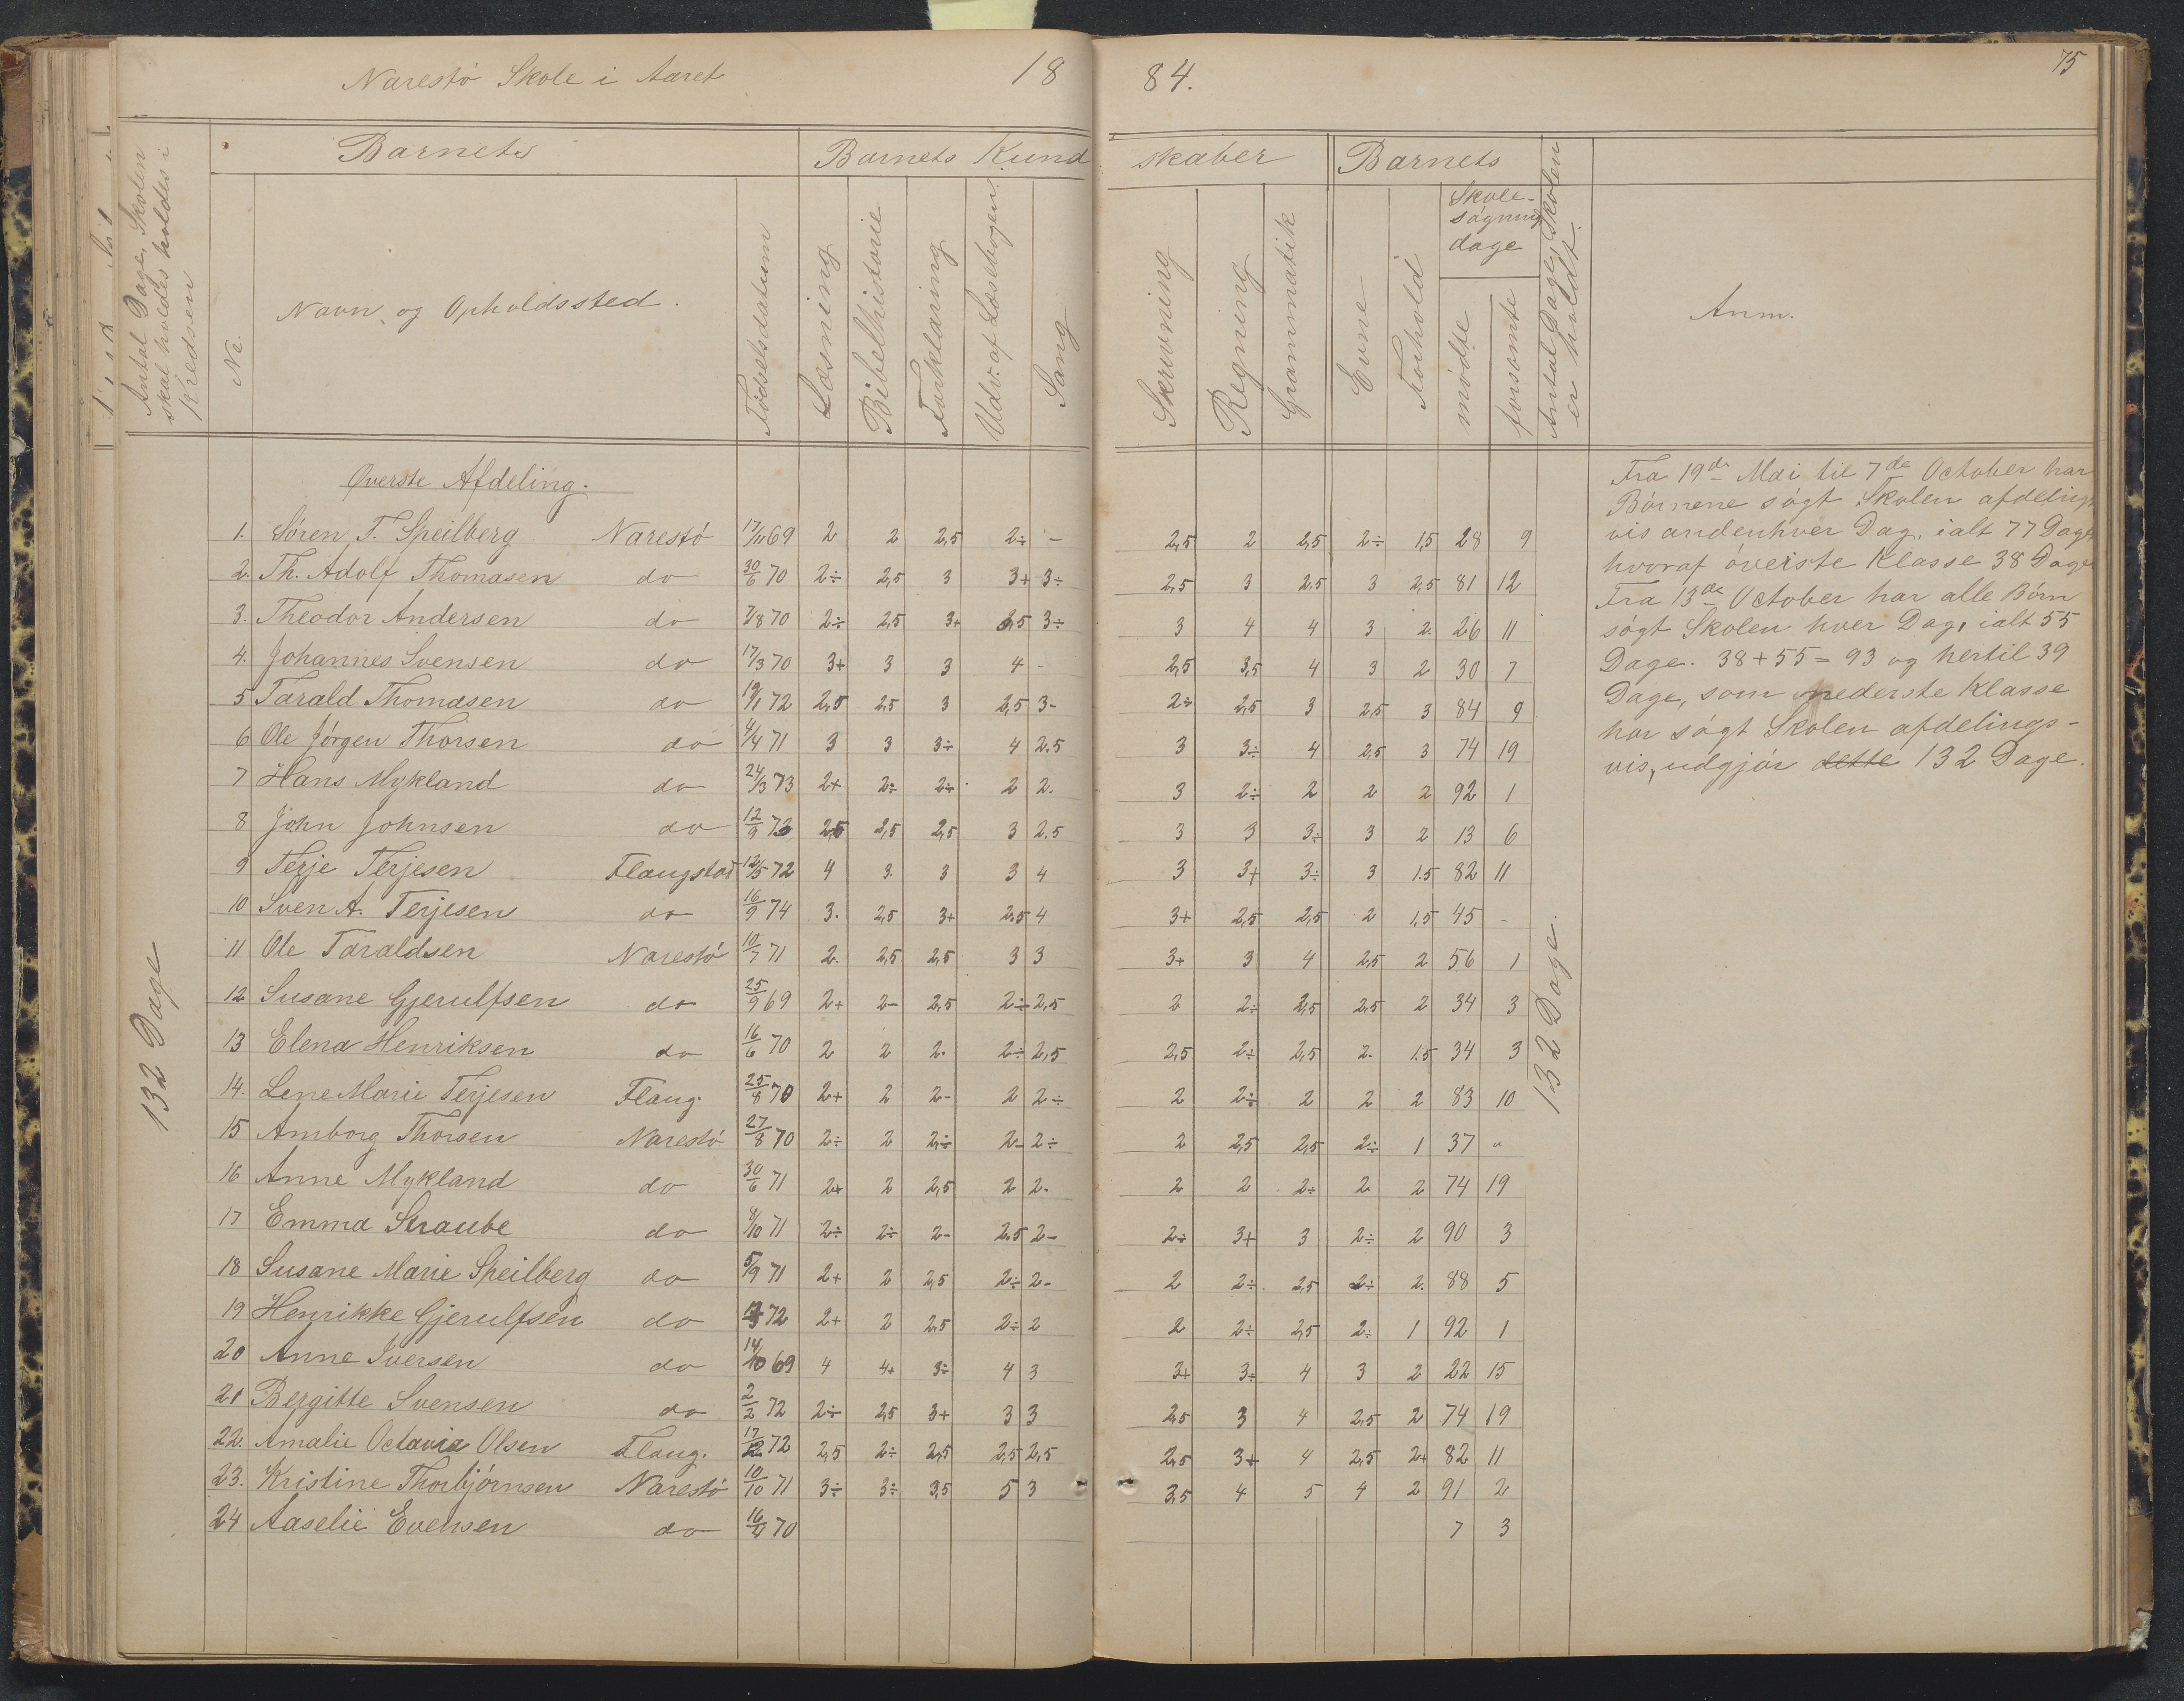 Narestö Skole i Aaret 18 84. 75
Barnets Barnets Kund skaber Barnets
Antal Dage, Skolen skal holdes holdes i Kredsen
No.
Navn, og Opholdssted.
Födselsdatum
Læsning
Bibelhistorie
Forklaring
Udv. af Læsebogen
Sang
Skrivning
Regning
Grammatik
Evne
Forhold
Skole-
sögnings
dage
mödte
forsömte
Antal Dage, Skolen er holdt.
Anm.
132 Dage
132 Dage.
Øverste Afdeling.
1. Søren T. Speilberg Narestö 17/11 69 2 2 2,5 2÷ - 2,5 2 2,5 2÷ 1,5 28 9
2. Th. Adolf Thomasen do 30/6 70 2÷ 2,5 3 3+ 3÷ 2,5 3 2,5 3 2,5 81 12
3. Theodor Andersen do 7/8 70 2÷ 2,5 3+ 3,5 3÷ 3 4 4 3 2. 26 11
4. Johannes Svensen do 17/3 70 3+ 3 3 4 - 2,5 3,5 4 3 2 30 7
5 Tarald Thomasen do 19/1 72 2,5 2,5 3 2,5 3- 2÷ 2,5 3 2,5 3 84 9
6 Ole Jörgen Thorsen do 4/4 71 3 3 3÷ 4 2.5 3 3÷ 4 2,5 3 74 19
7 Hans Mykland do 24/3 73 2+ 2÷ 2÷ 2 2. 3 2÷ 2 2 2 92 1
8 John Johnsen do 12/9 73 2,5 2,5 2,5 3 2.5 3 3 3÷ 3 2 13 6
9 Terje Terjesen Flaugstad 12/5 72 4 3. 3 3 4 3 3+ 3÷ 3 1.5 82 11
10 Sven A. Terjesen do 16/9 74 3. 2,5 3+ 2.5 4 3+ 2,5 2,5 2 1,5 45 -
11 Ole Taraldsen Narestö 10/7 71 2. 2,5 2,5 3 3 3+ 3 4 2,5 2 56 1
12 Susane Gjerulfsen do 25/9 69 2+ 2- 2,5 2÷ 2,5 2 2÷ 2,5 2,5 2 34 3
13 Elena Henriksen do 16/6 70 2 2 2. 2÷ 2,5 2,5 2÷ 2,5 2. 1.5 34 3
14. Lene Marie Terjesen Flaug. 25/8 70 2+ 2 2- 2 2÷ 2 2÷ 2 2 2 83 10
15 Amborg Thorsen Narestö 27/8 70 2÷ 2 2÷ 2- 2÷ 2 2,5 2,5 2÷ 1 37 "
16 Anne Mykland do 30/6 71 2+ 2 2,5 2 2. 2 2 2÷ 2 2 74 19
17 Emma Straube do 8/10 71 2÷ 2÷ 2- 2.5 2- 2÷ 3+ 3 2÷ 2 90 3
18 Susane Marie Speilberg do 5/9 71 2+ 2 2,5 2÷ 2- 2 2÷ 2,5 2÷ 2. 88 5
19 Henrikke Gjerulfsen do 72 2+ 2 2,5 2÷ 2 2 2÷ 2,5 2÷ 1 92 1
20 Anne Iversen do 14/10 69 4 4+ 3÷ 4 3 3+ 3÷ 4 3 2 22 15
21 Bergitte Svensen do 2/2 72 2÷ 2,5 3+ 3 3 2,5 3 4 2,5 2 74 19
22. Amalie Octavia Olsen Flaug. 17/12 72 2,5 2÷ 2,5 2,5 2,5 2,5 3+ 4 2,5 2+ 82 11
23. Kristine Thorbjörnsen Narestö 10/10 71 3÷ 3÷ 3,5 5 3 3,5 4 5 4 2 91 2
24 Aaselie Evensen do 16/4 70 7 3
Fra 19de Mai til 7de October har
Börnene sögt Skolen afdelings
vis andenhver Dag, ialt 77 Dage
hvoraf överste Klasse 38 Dage
Fra 13de October har alle Börn
sögt Skolen hver Dag, ialt 55
Dage. 38 + 55 = 93 og hertil 39
Dage, som nederste Klasse
har sögt Skolen afdelings-
vis, udgjör dette 132 Dage.